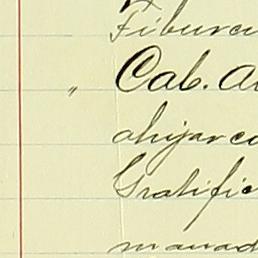 Tiburcu
" Cab. A
ahijar ca
Gratific
manad